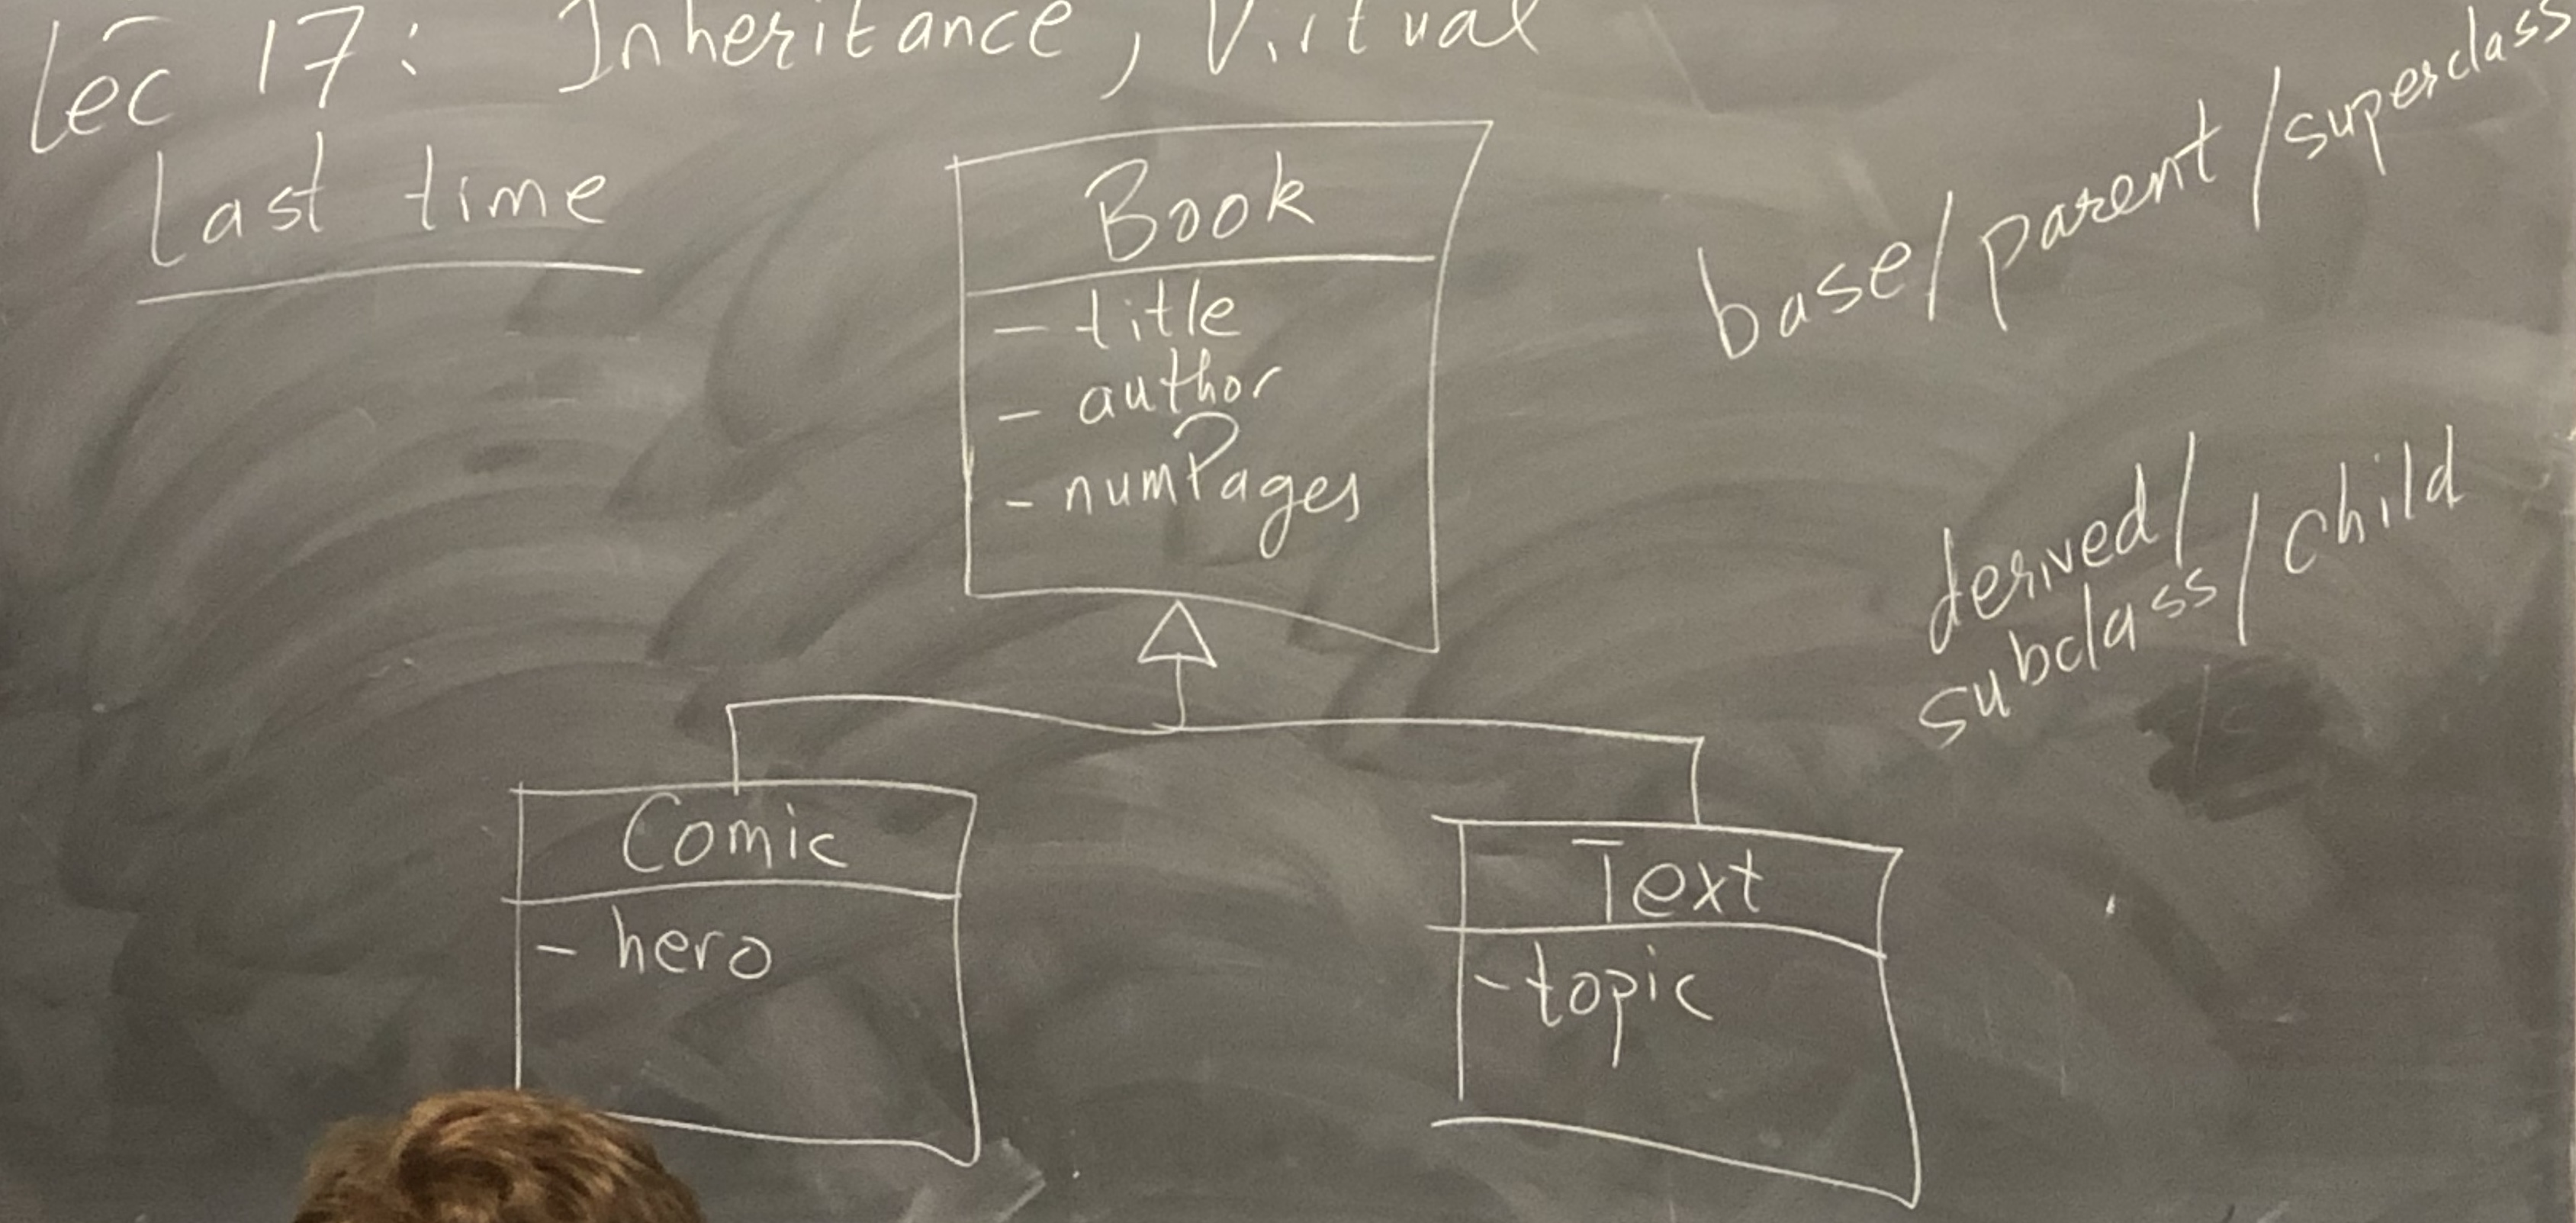 Lec 17: Inheritance, Virtual
Last time
Book
- title
- author
- numPages
base/parent/superclass
derived/
subclass/child
Comic
- hero
Text
- topic